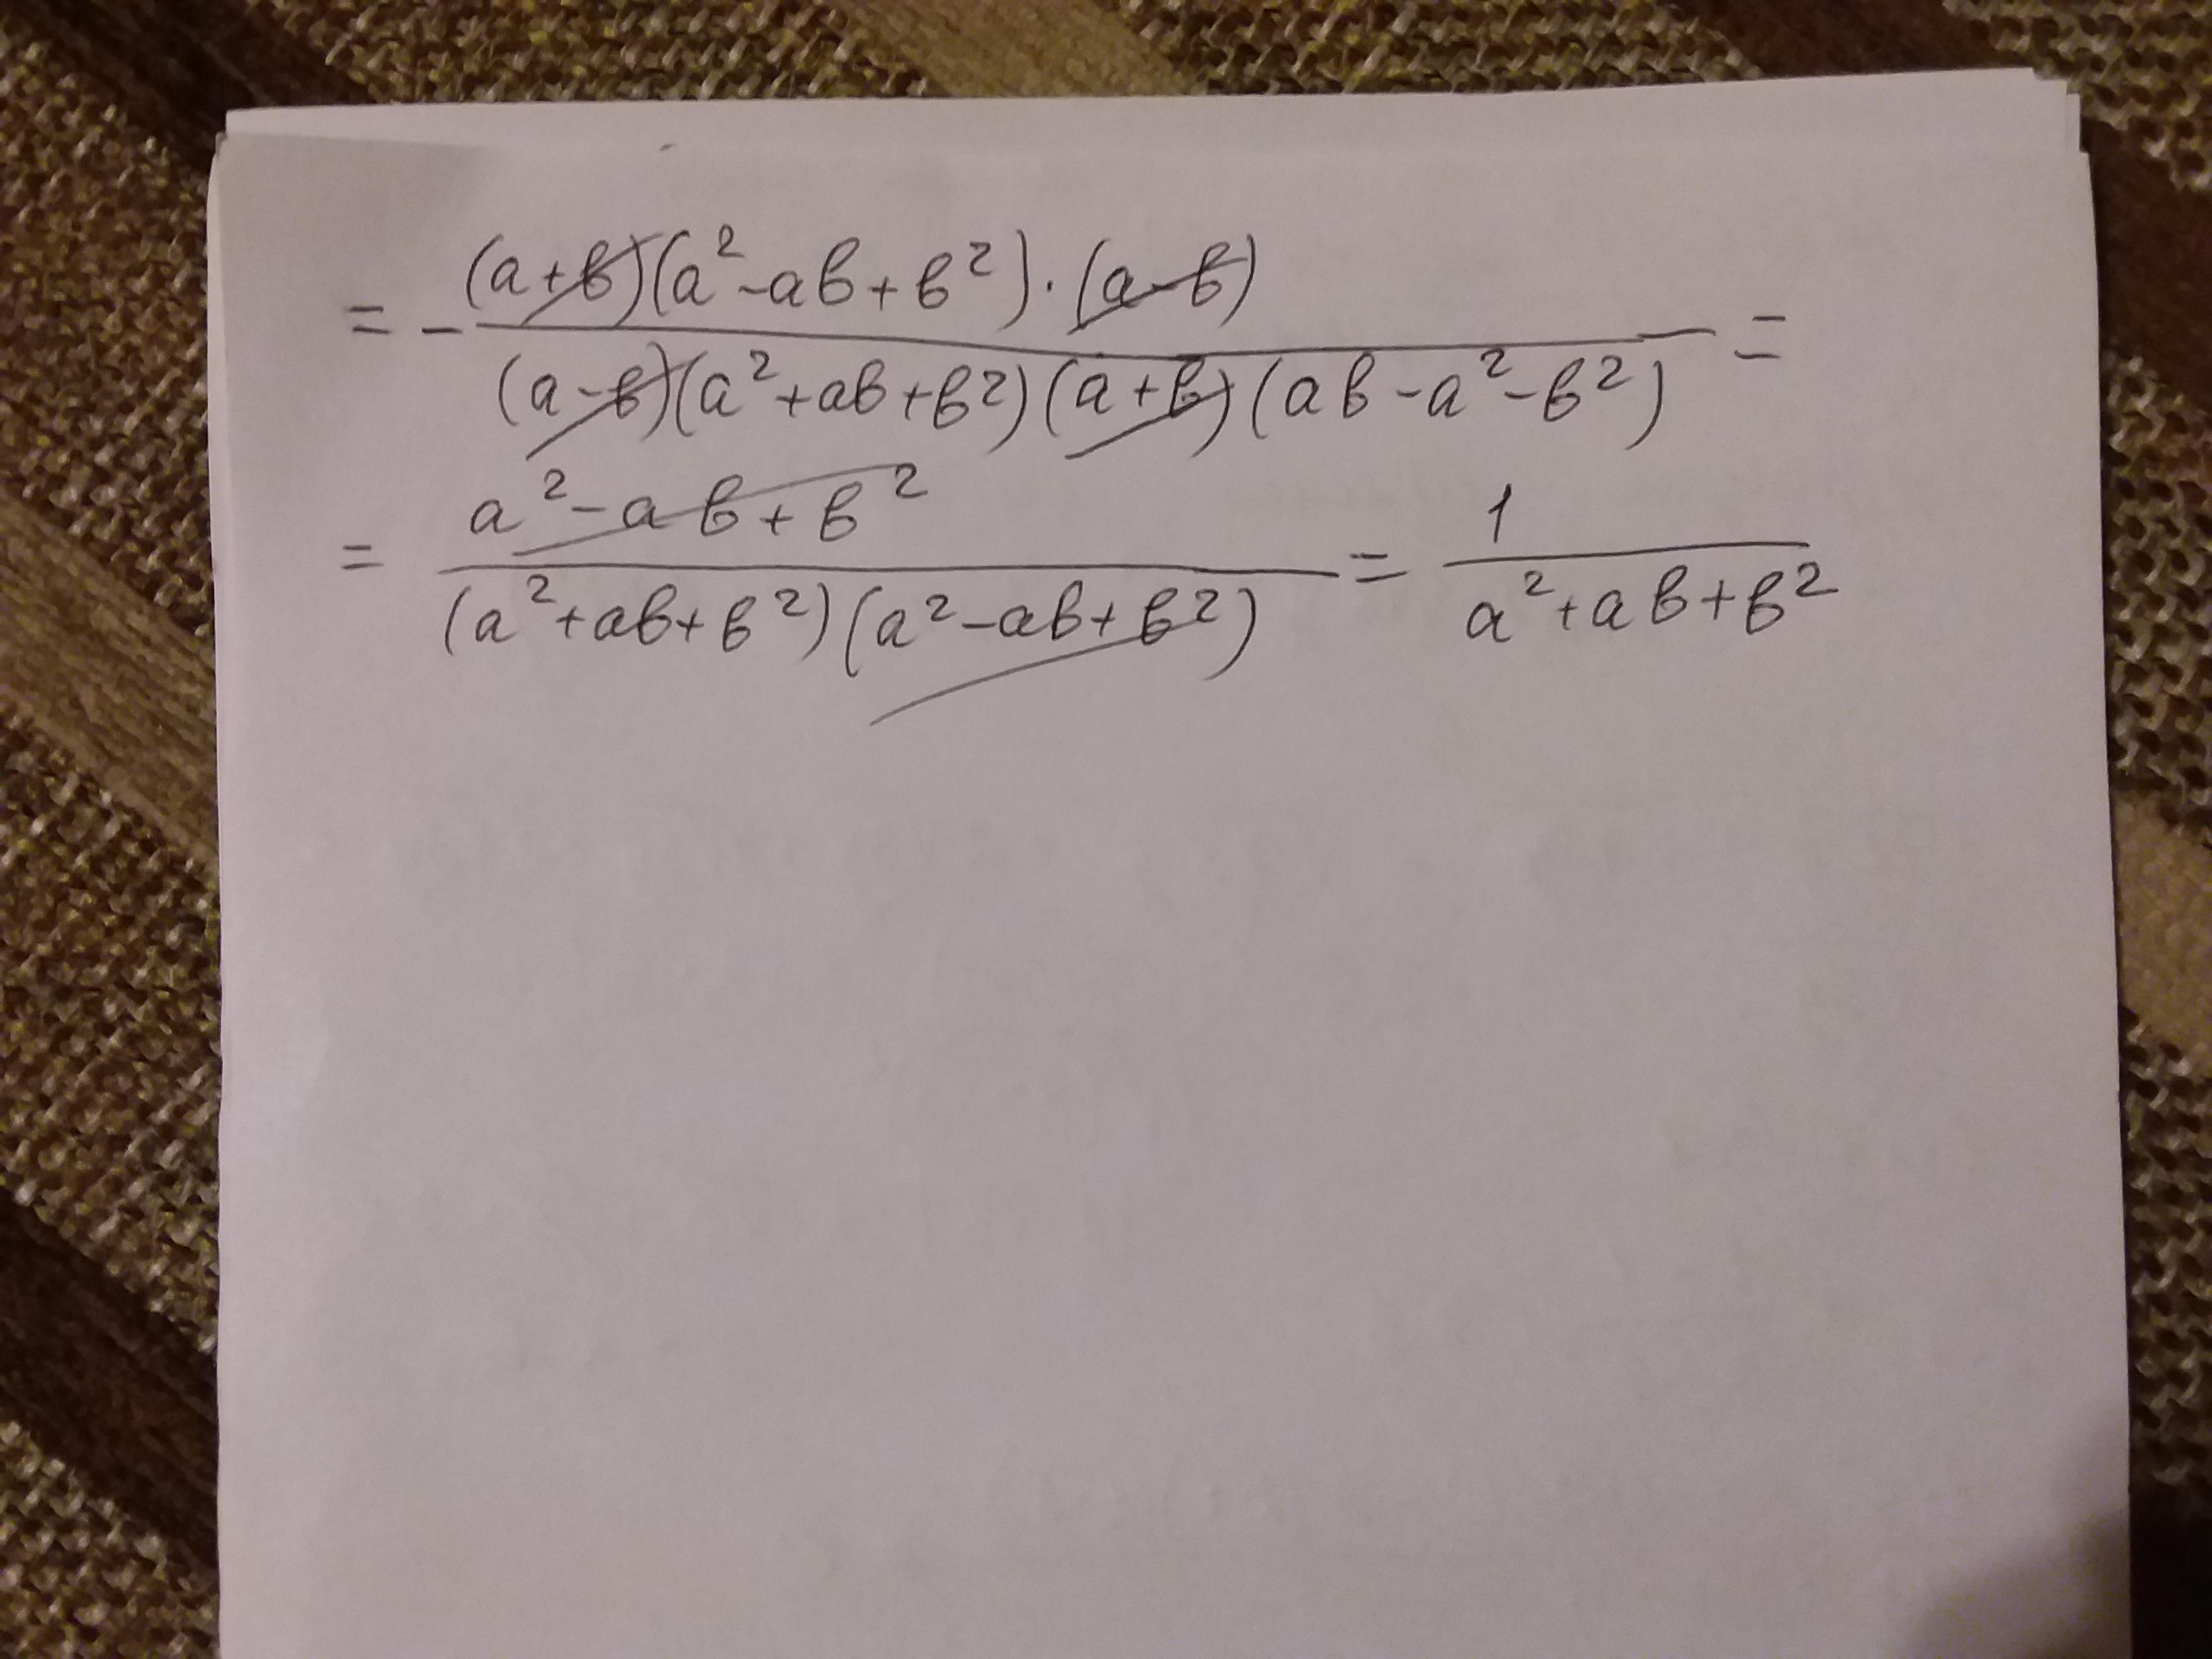 = - (a+b)(a²-ab+b²)·(a-b) / (a-b)(a²+ab+b²)(a+b)(ab-a²-b²) =
= a²-ab+b² / (a²+ab+b²)(a²-ab+b²) = 1 / a²+ab+b²